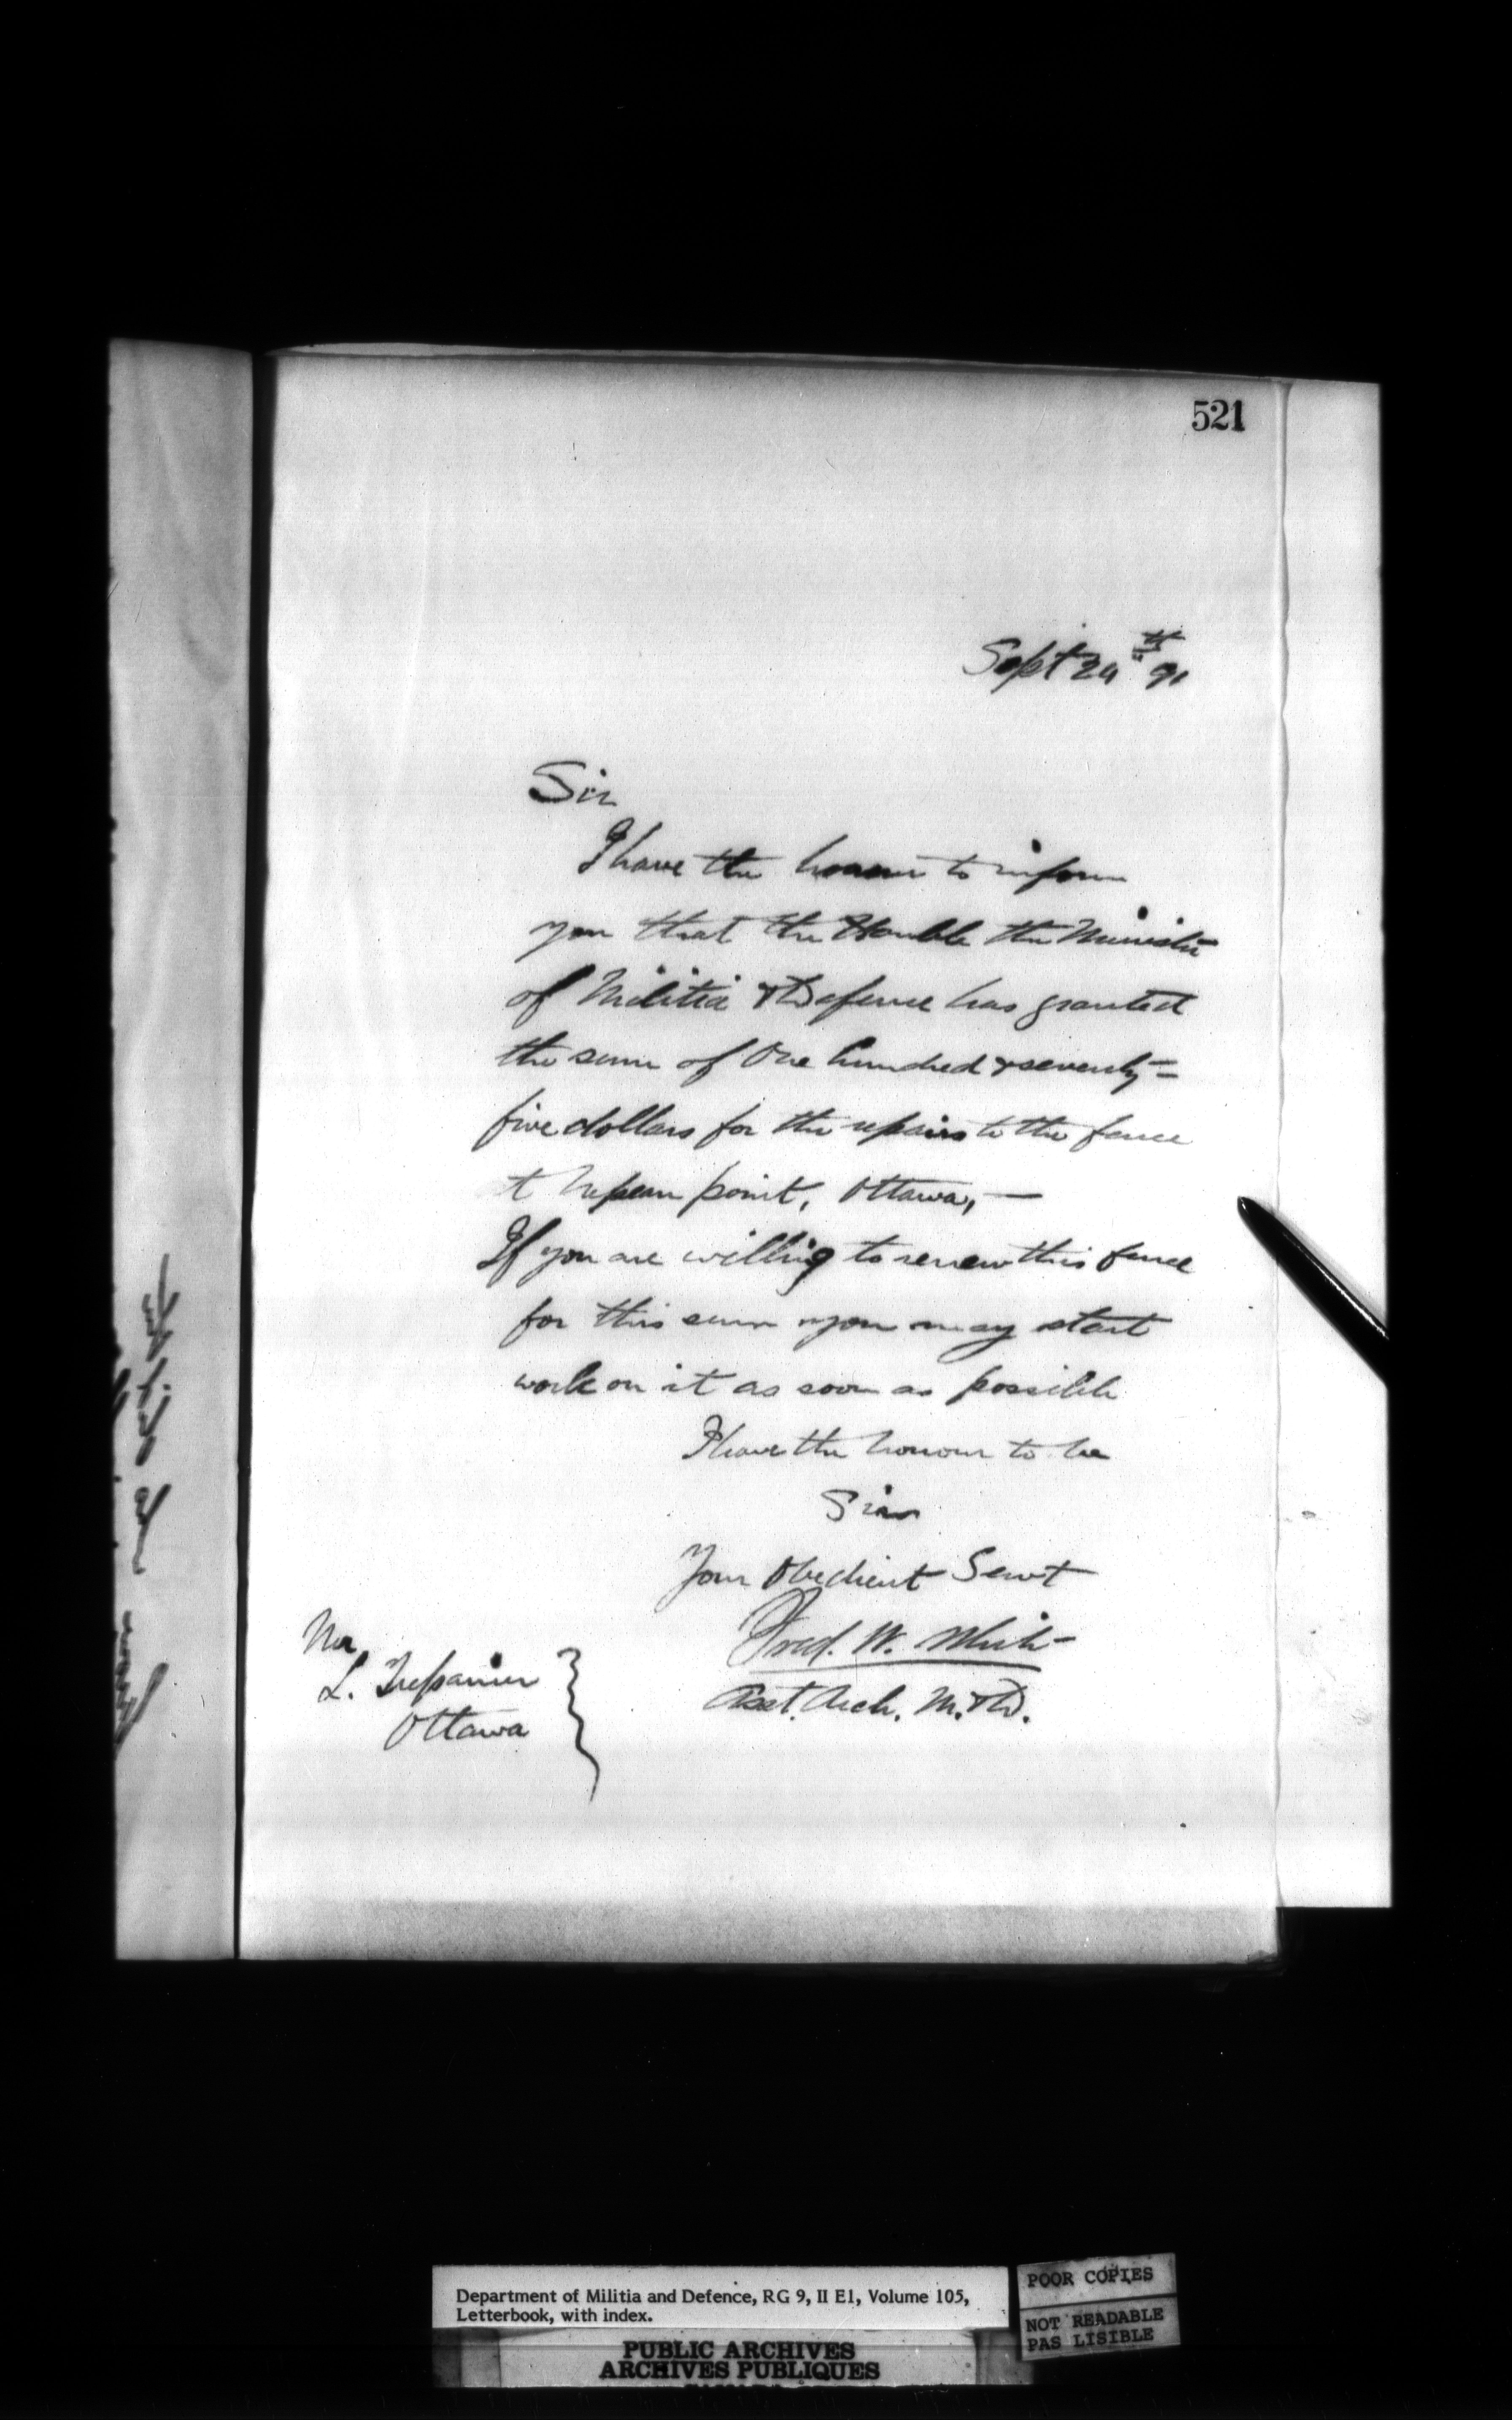 521
Sept 29th 91
Sir
I have the honour to inform
you that the Honble the Minister
of Militia & Defence has granted
the sum of One hundred & seventy=
five dollars for the repairs to the fence
at Nepean point, Ottawa,—
If you are willing to renew this fence
for this sum you may start
work on it as soon as possible
I have the honour to be
Sir
Your Obedient Servt
Fred. W. White
Asst. Arch. M. & D.
Mr
L. Trepanier
Ottawa
Department of Militia and Defence, RG 9, II E1, Volume 105,
Letterbook, with index.
POOR COPIES
NOT READABLE
PAS LISIBLE
PUBLIC ARCHIVES
ARCHIVES PUBLIQUES